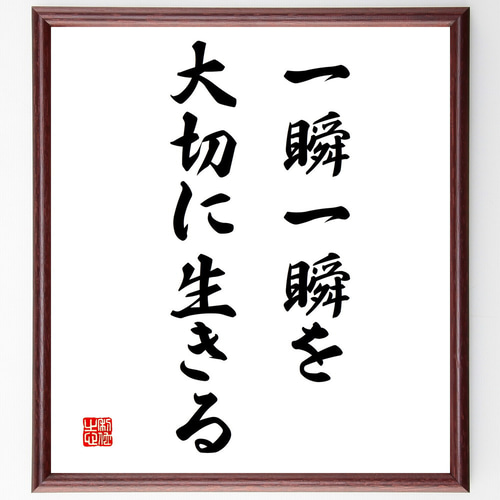 一瞬一瞬を
大切に生きる